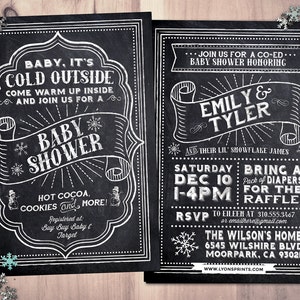 BABY, IT'S
COLD OUTSIDE
COME WARM UP INSIDE
AND JOIN US FOR A
BABY
SHOWER
HOT COCOA,
COOKIES AND MORE!
Registered at
Buy Buy Baby &
Target
JOIN US FOR A CO-ED
BABY SHOWER HONORING
EMILY &
TYLER
AND THEIR LIL' SNOWFLAKE JAMES
SATURDAY
DEC 10
1-4PM
BRING A
Pack of DIAPERS
FOR THE
RAFFLE
RSVP TO EILEEN AT 310.555.3467
THE WILSON'S HOME
6545 WILSHIRE BLVD
MOORPARK, CA 9302
WWW.LYONSPRINTS.COM